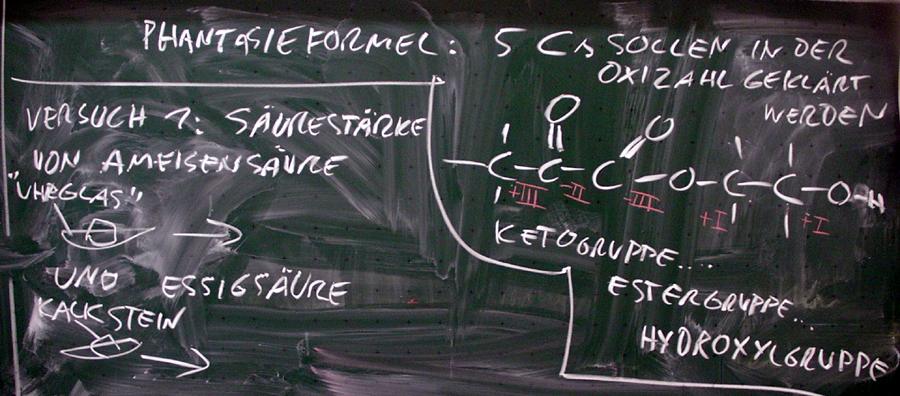 PHANTASIEFORMEL: 5 Cs SOLLEN IN DER
OXIZAHL GEKLÄRT
WERDEN
VERSUCH 1: SÄURESTÄRKE
VON AMEISENSÄURE
"UHRGLAS"
UND ESSIGSÄURE
KALKSTEIN
O O
-C-C-C-O-C-C-O-H
+III -II -III +I +I
KETOGRUPPE....
ESTERGRUPPE...
HYDROXYLGRUPPE